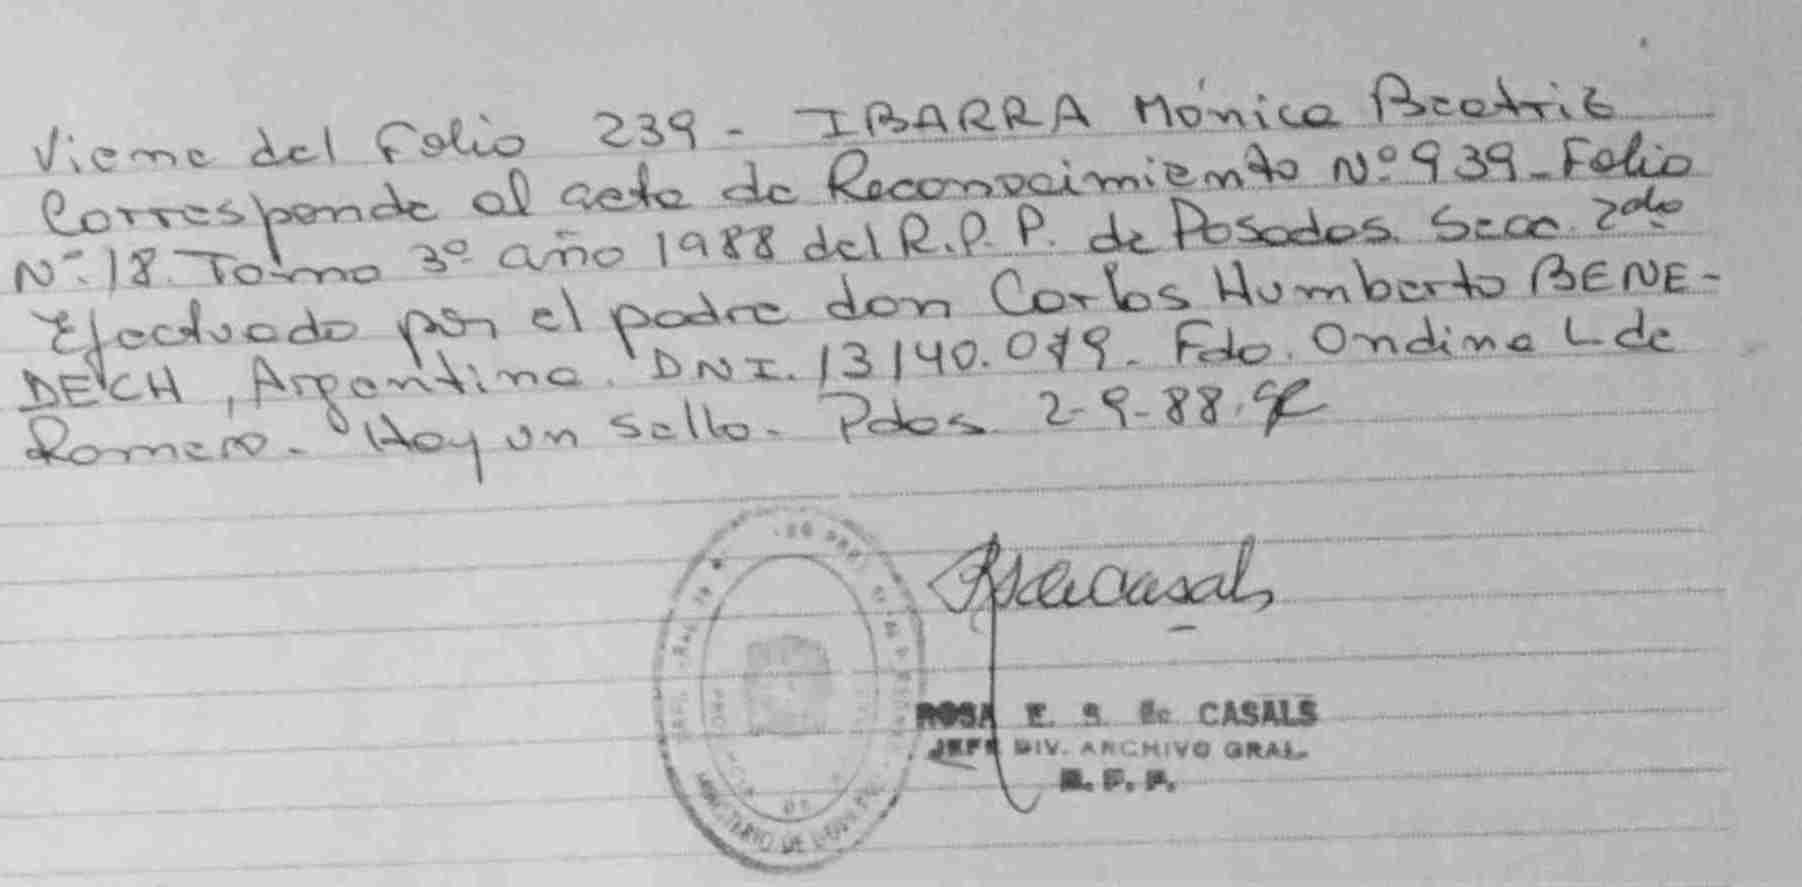 Viene del Folio 239 - IBARRA Mónica Beatriz
Corresponde al acta de Reconocimiento Nº 939 - Folio
Nº 18. Tomo 3º año 1988 del R.P.P. de Posadas. Secc. 2da
Efectuado por el padre don Carlos Humberto BENE-
DECH, Argentino. DNI. 13140.079. Fdo. Ondina L de
Romero. Hay un sello. Pdas. 2-9-88.
MINISTERIO DE
ROSA E. S. de CASALS
JEFE DIV. ARCHIVO GRAL.
R. P. P.